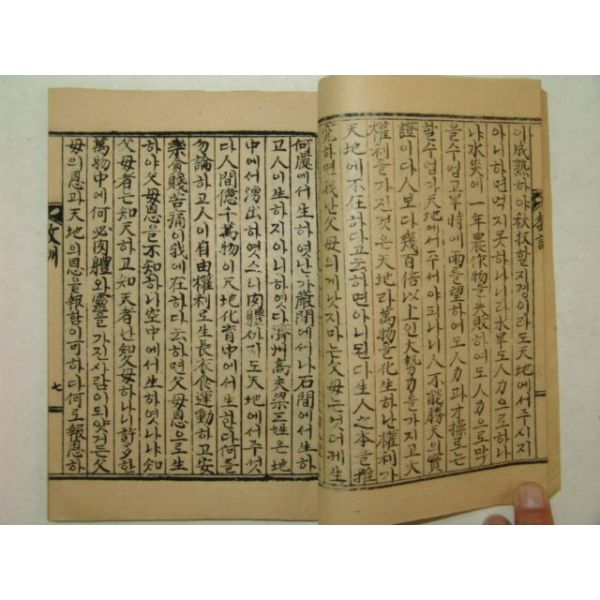 이成熟하야秋收할지경이라도天地에서주시지
아니하면먹지못하나니라水旱도人力으로하나
냐水災에一年農作物을失敗하여도人力으로막
을수업고旱時에雨를望하여도人力과才操로는
할수업다天地에서주서야되나니人不能勝天의實
證이다人보다幾百倍以上인大勢力을가지고大
權利를가진것은天地라萬物을化生하난權利가
天地에不在하다고云하면아니된다生人之本을推
究하면我난父母의게낫지마는父母는엇더케生
敎訓
何處에서生하엿난가巖間에서나石間에서生하
고人이生하지아니하엿다濟州高夫梁三姓은地
中에서湧出하엿스니肉體까지도天地에서주섯
다人間億千萬物이天地化育中에서生한다何를
勿論하고人이自由權利로生長衣食運動하고安
樂貧賤苦痛이我에在하다云하면父母恩으로生
하야父母恩을不知하니空中에서生하엿나냐知
父母者는知天하고知天者난知父母하나니許多한
萬物中에何必肉體와靈을가진사람이되엿거든父
母의恩과天地의恩을報함이可하다何로報恩하
文明
七